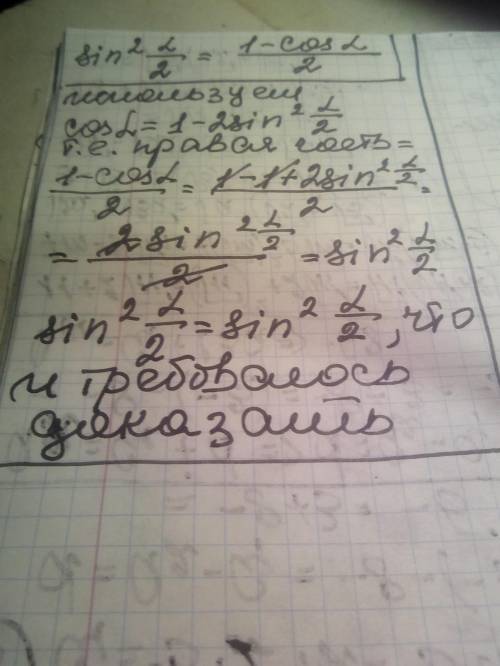 sin² α/2 = (1-cosα)/2
используем
cosα = 1-2sin² α/2
т.е. правая часть =
(1-cosα)/2 = (1-1+2sin² α/2)/2 =
= (2sin² α/2)/2 = sin² α/2
sin² α/2 = sin² α/2, что
и требовалось
доказать